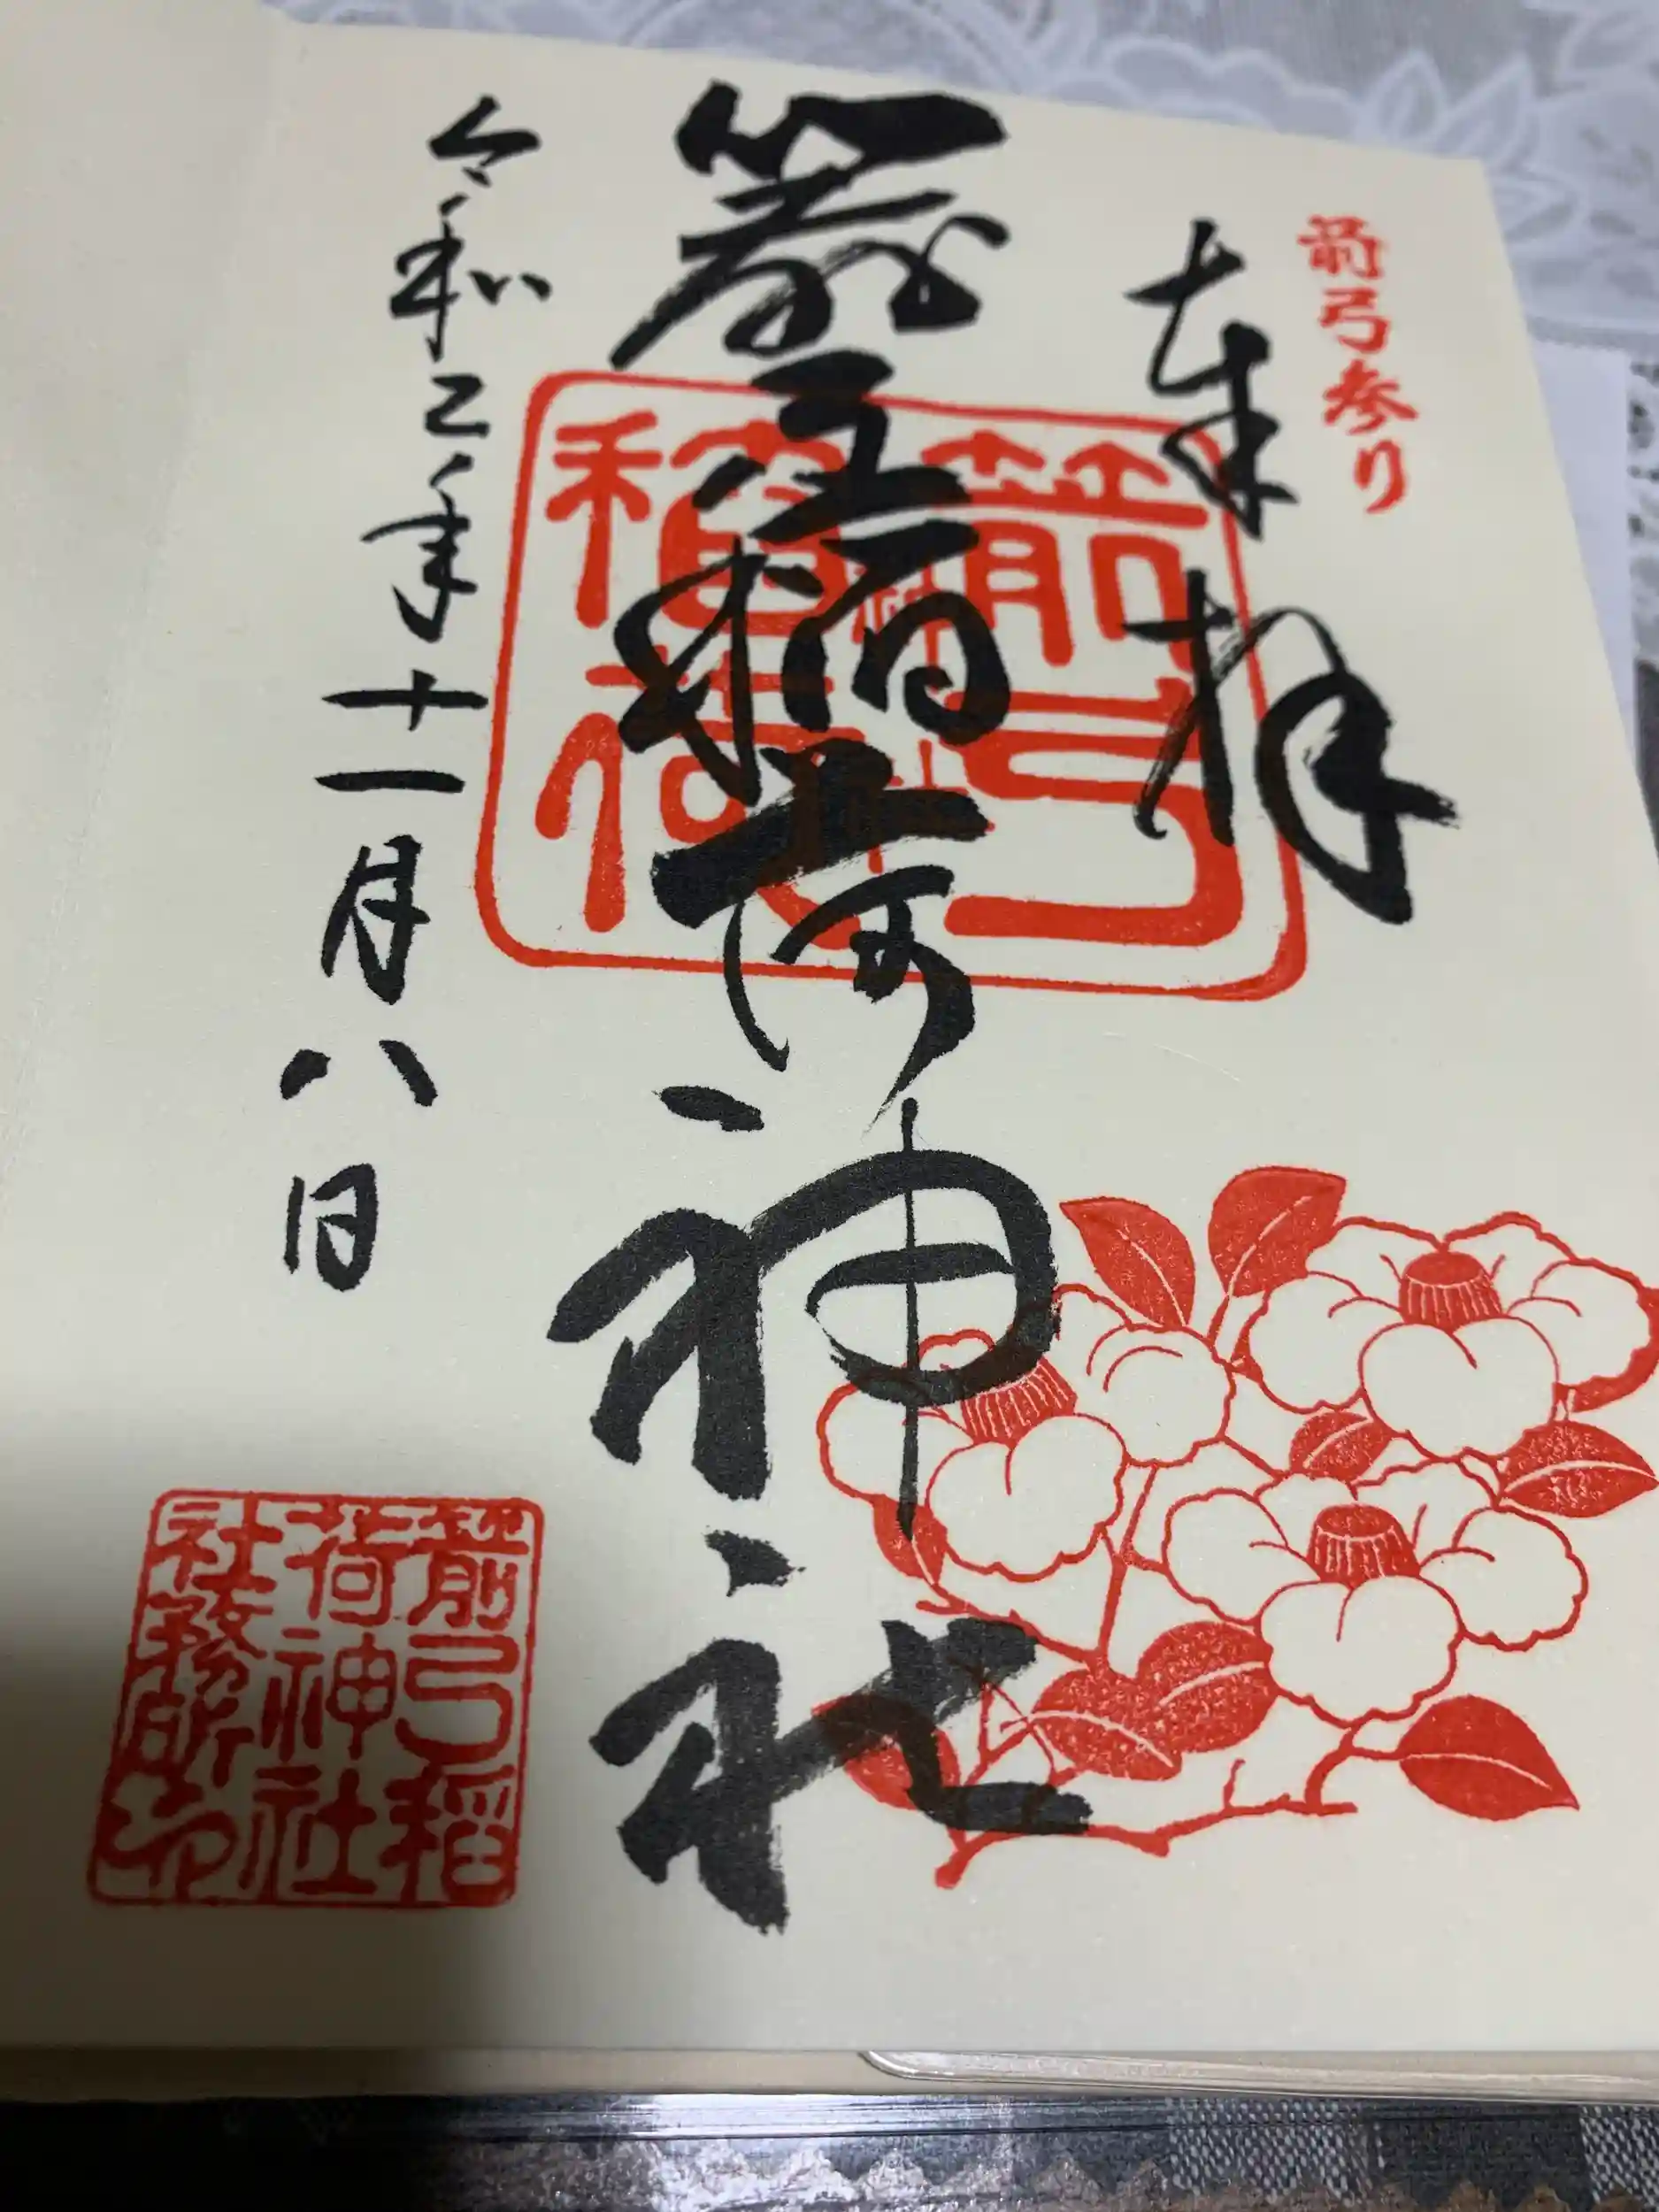 箭弓参り
奉拝
箭弓稲荷神社
箭弓
稲荷
令和二年十一月八日
箭弓稲
荷神社
社務所印